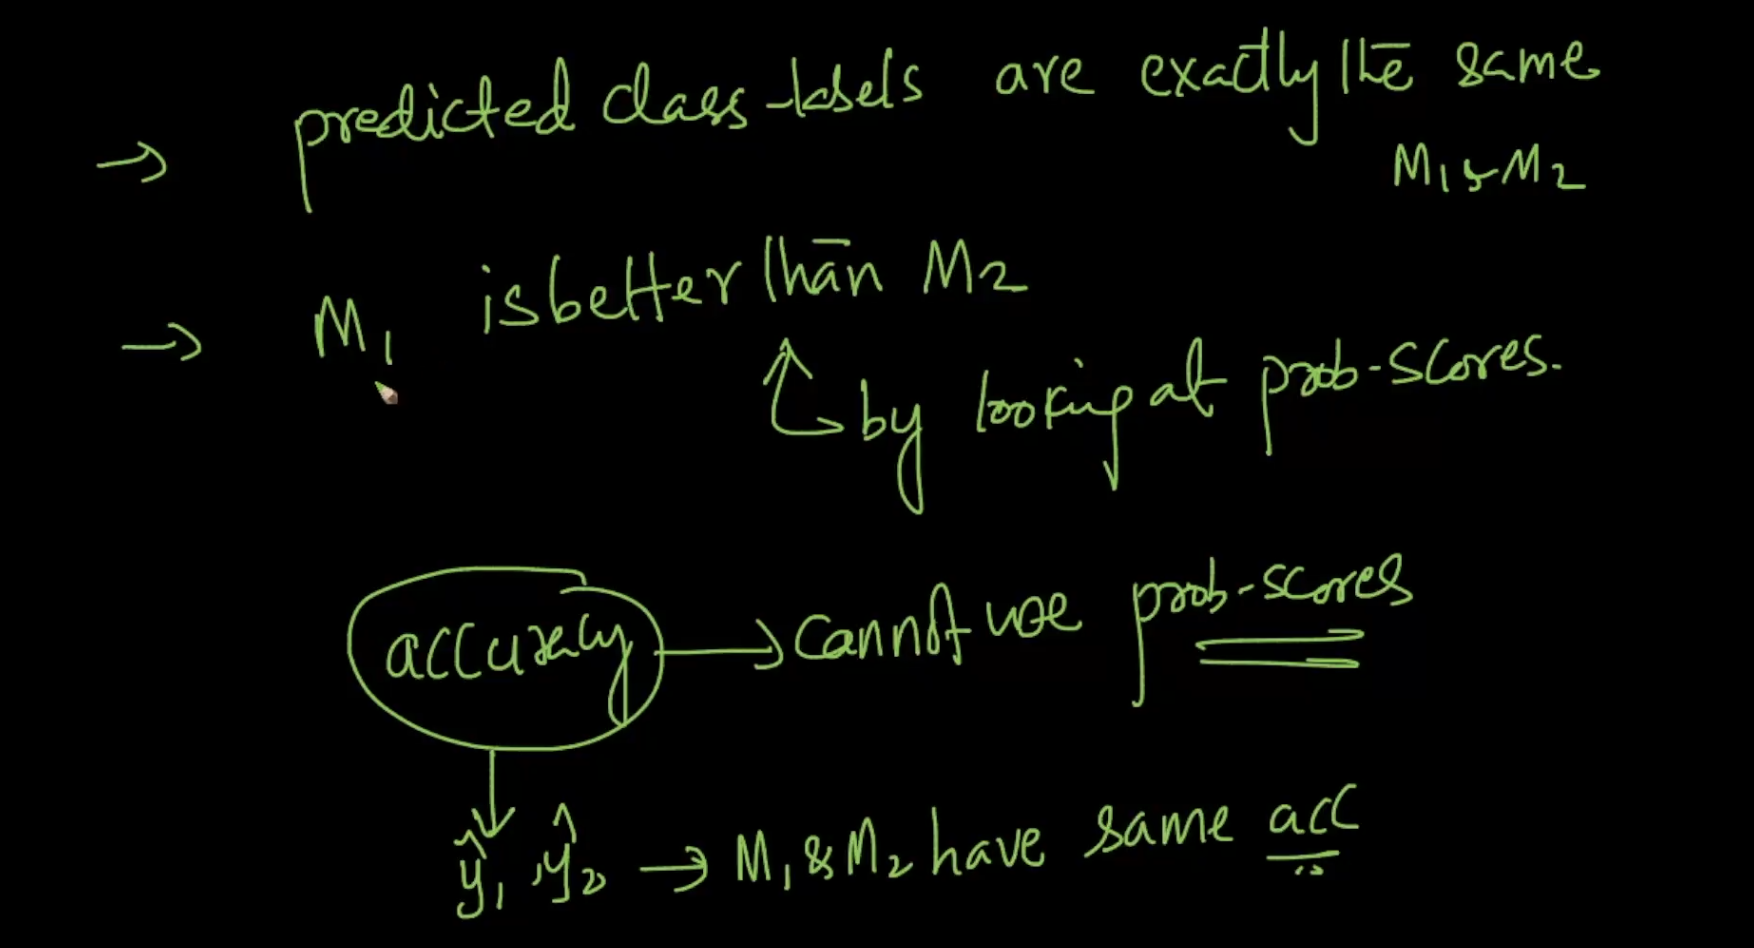 → predicted class-labels are exactly the same
M1 & M2
→ M1 is better than M2
by looking at prob-scores.
accuracy → cannot use prob-scores
ŷ1, ŷ2 → M1 & M2 have same acc